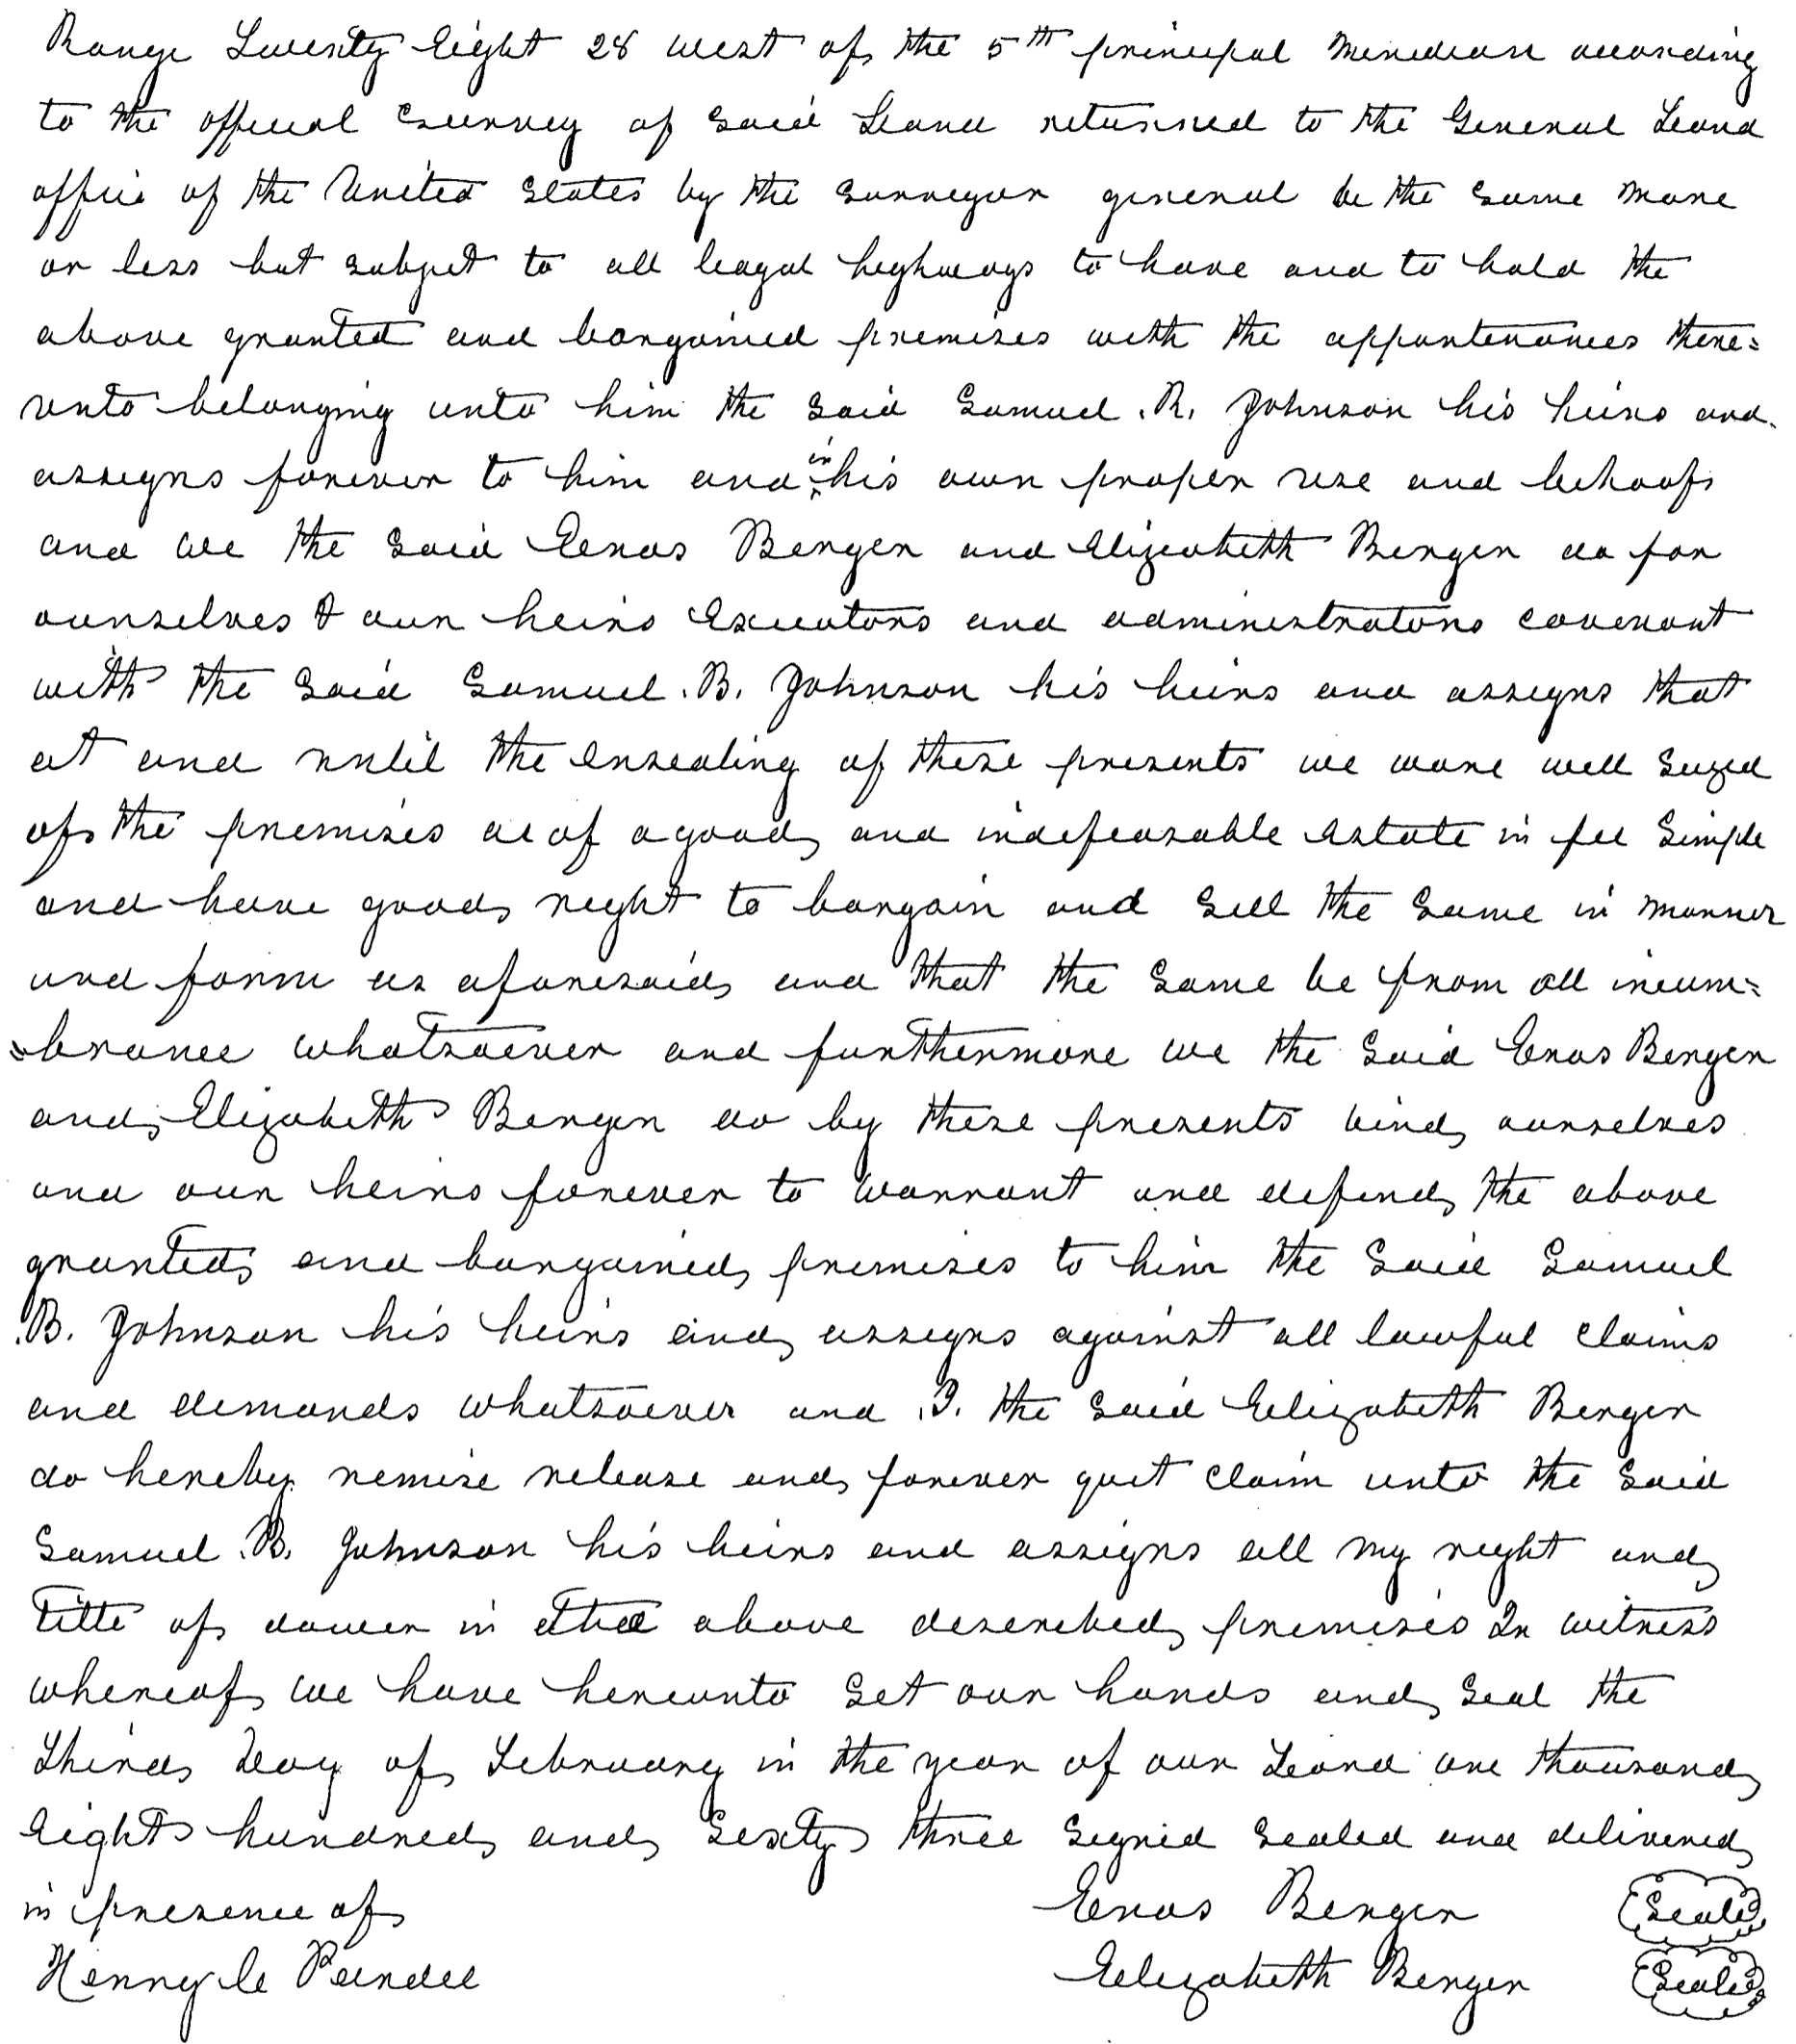 Range Twenty Eight 28 west of the 5th principal Meridian according
to the official Survey of Said Land returned to the General Land
office of the United States by the Surveyor general be the same more
or less but subject to all leagal highways to have and to hold the
above granted and bargained premises with the appurtenances there=
unto belonging unto him the Said Samuel .R. Johnson his heirs and
assigns forever to him and in his own proper use and behoof
and we the Said Eenos Bergen and Elizabeth Bergen do for
ourselves & our heirs Executors and administrators covenant
with the Said Samuel .B. Johnson his heirs and assigns that
at and until the Ensealing of these presents we ware well Siezed
of the premises as of a good and indefeasable Estate in fee Simple
and have good right to bargain and Sell the Same in manner
and form as aforesaid and that the Same be from all incum=
=brance whatsoever and furthermore we the Said Enos Bergen
and Elizabeth Bergen do by these presents bind ourselves
and our heirs forever to warrant and defend the above
granted and bargained premises to him the Said Samuel
.B. Johnson his heirs and assigns against all lawful claims
and demands whatsoever and .I. the Said Eelizabeth Bergen
do hereby remise release and forever quit claim unto the Said
Samuel .B. Johnson his heirs and assigns all my right and
title of dower in the above described premises In witness
whereof we have hereunto Set our hands and Seal the
Third Day of February in the year of our Lord one thousand
Eight hundred and Sixty three Signed Sealed and delivered
in presence of Eenos Bergen Seal
Henry Eelizabeth Bergen Seal